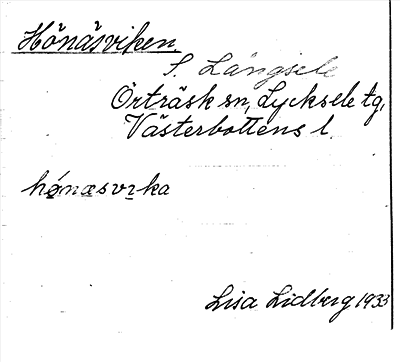 Hönäsviken.
S. Långsele
Örträsk sn, Lycksele tg,
Västerbottens l.
hǿnæsvıka
Lisa Lidberg 1933